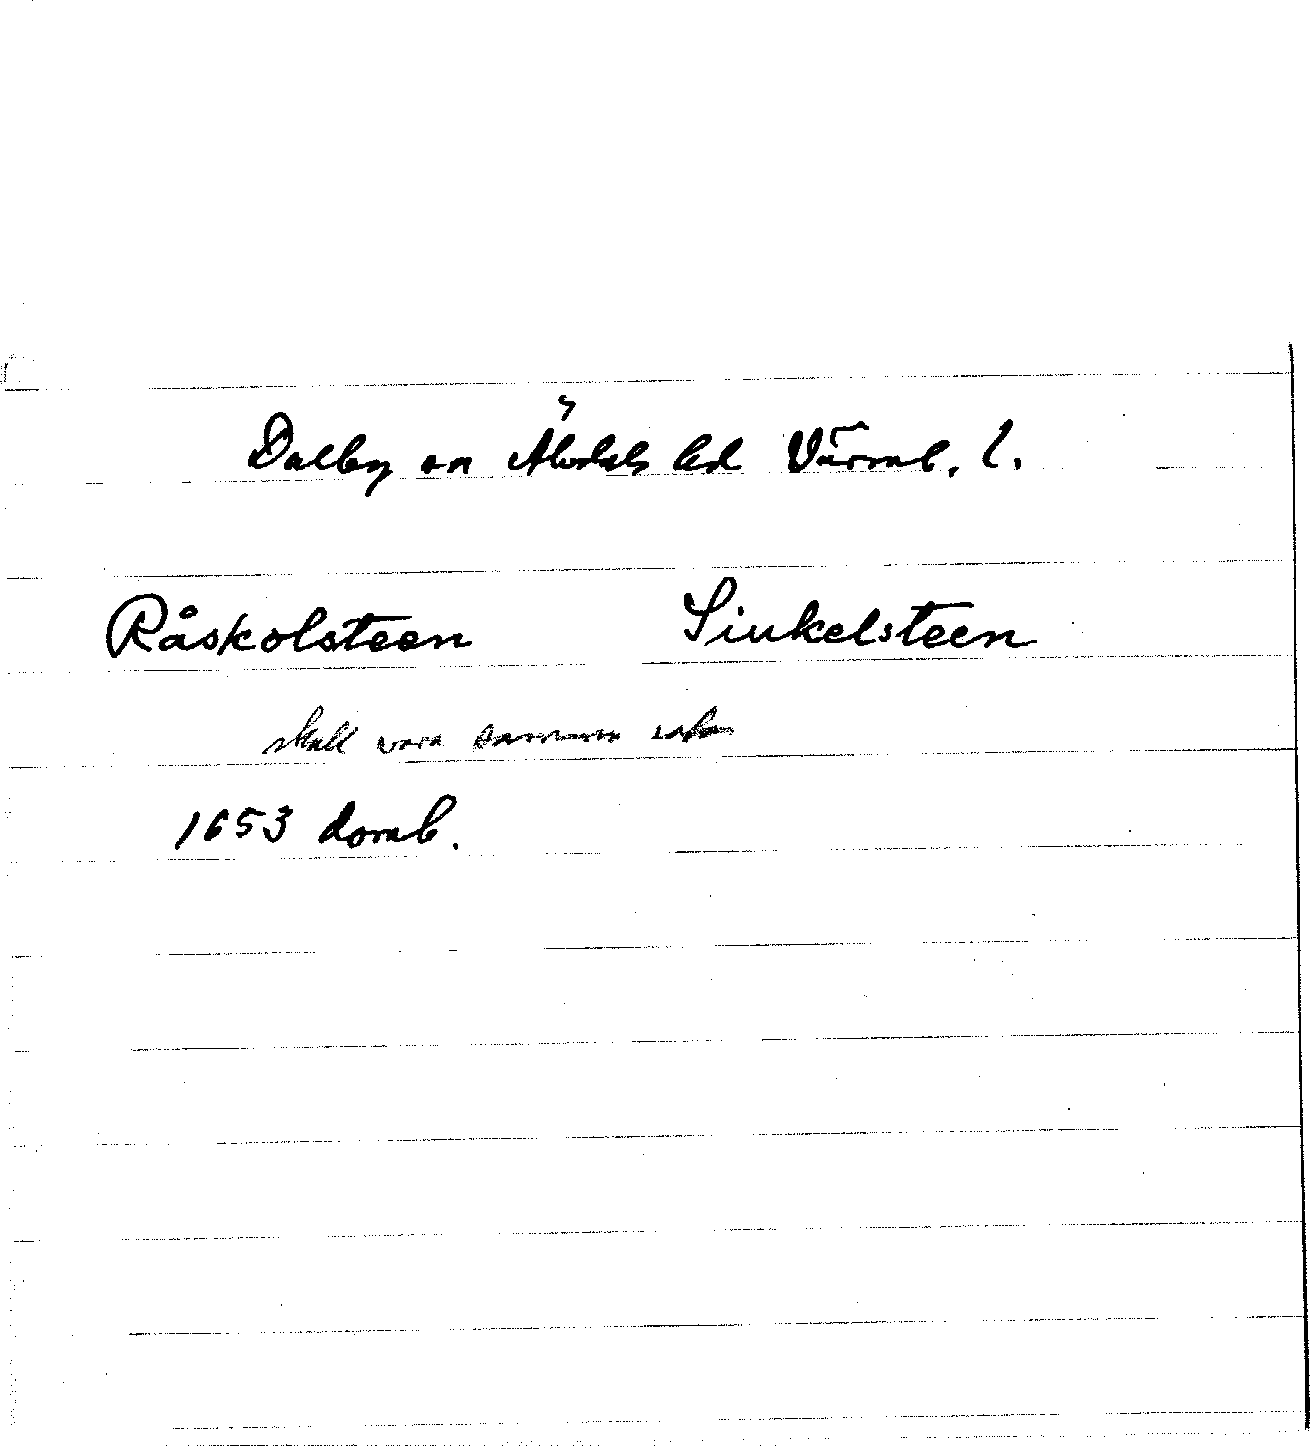 Dalby sn Älvdals hd Värml. l.
Råskolsteen Sinkelsteen
skall vara samma
1653 domb.